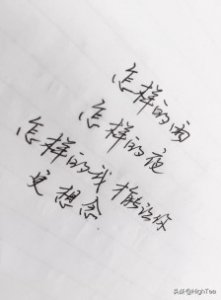 怎样的雨
怎样的夜
怎样的我 才能让你
更想念
头条@HighTea